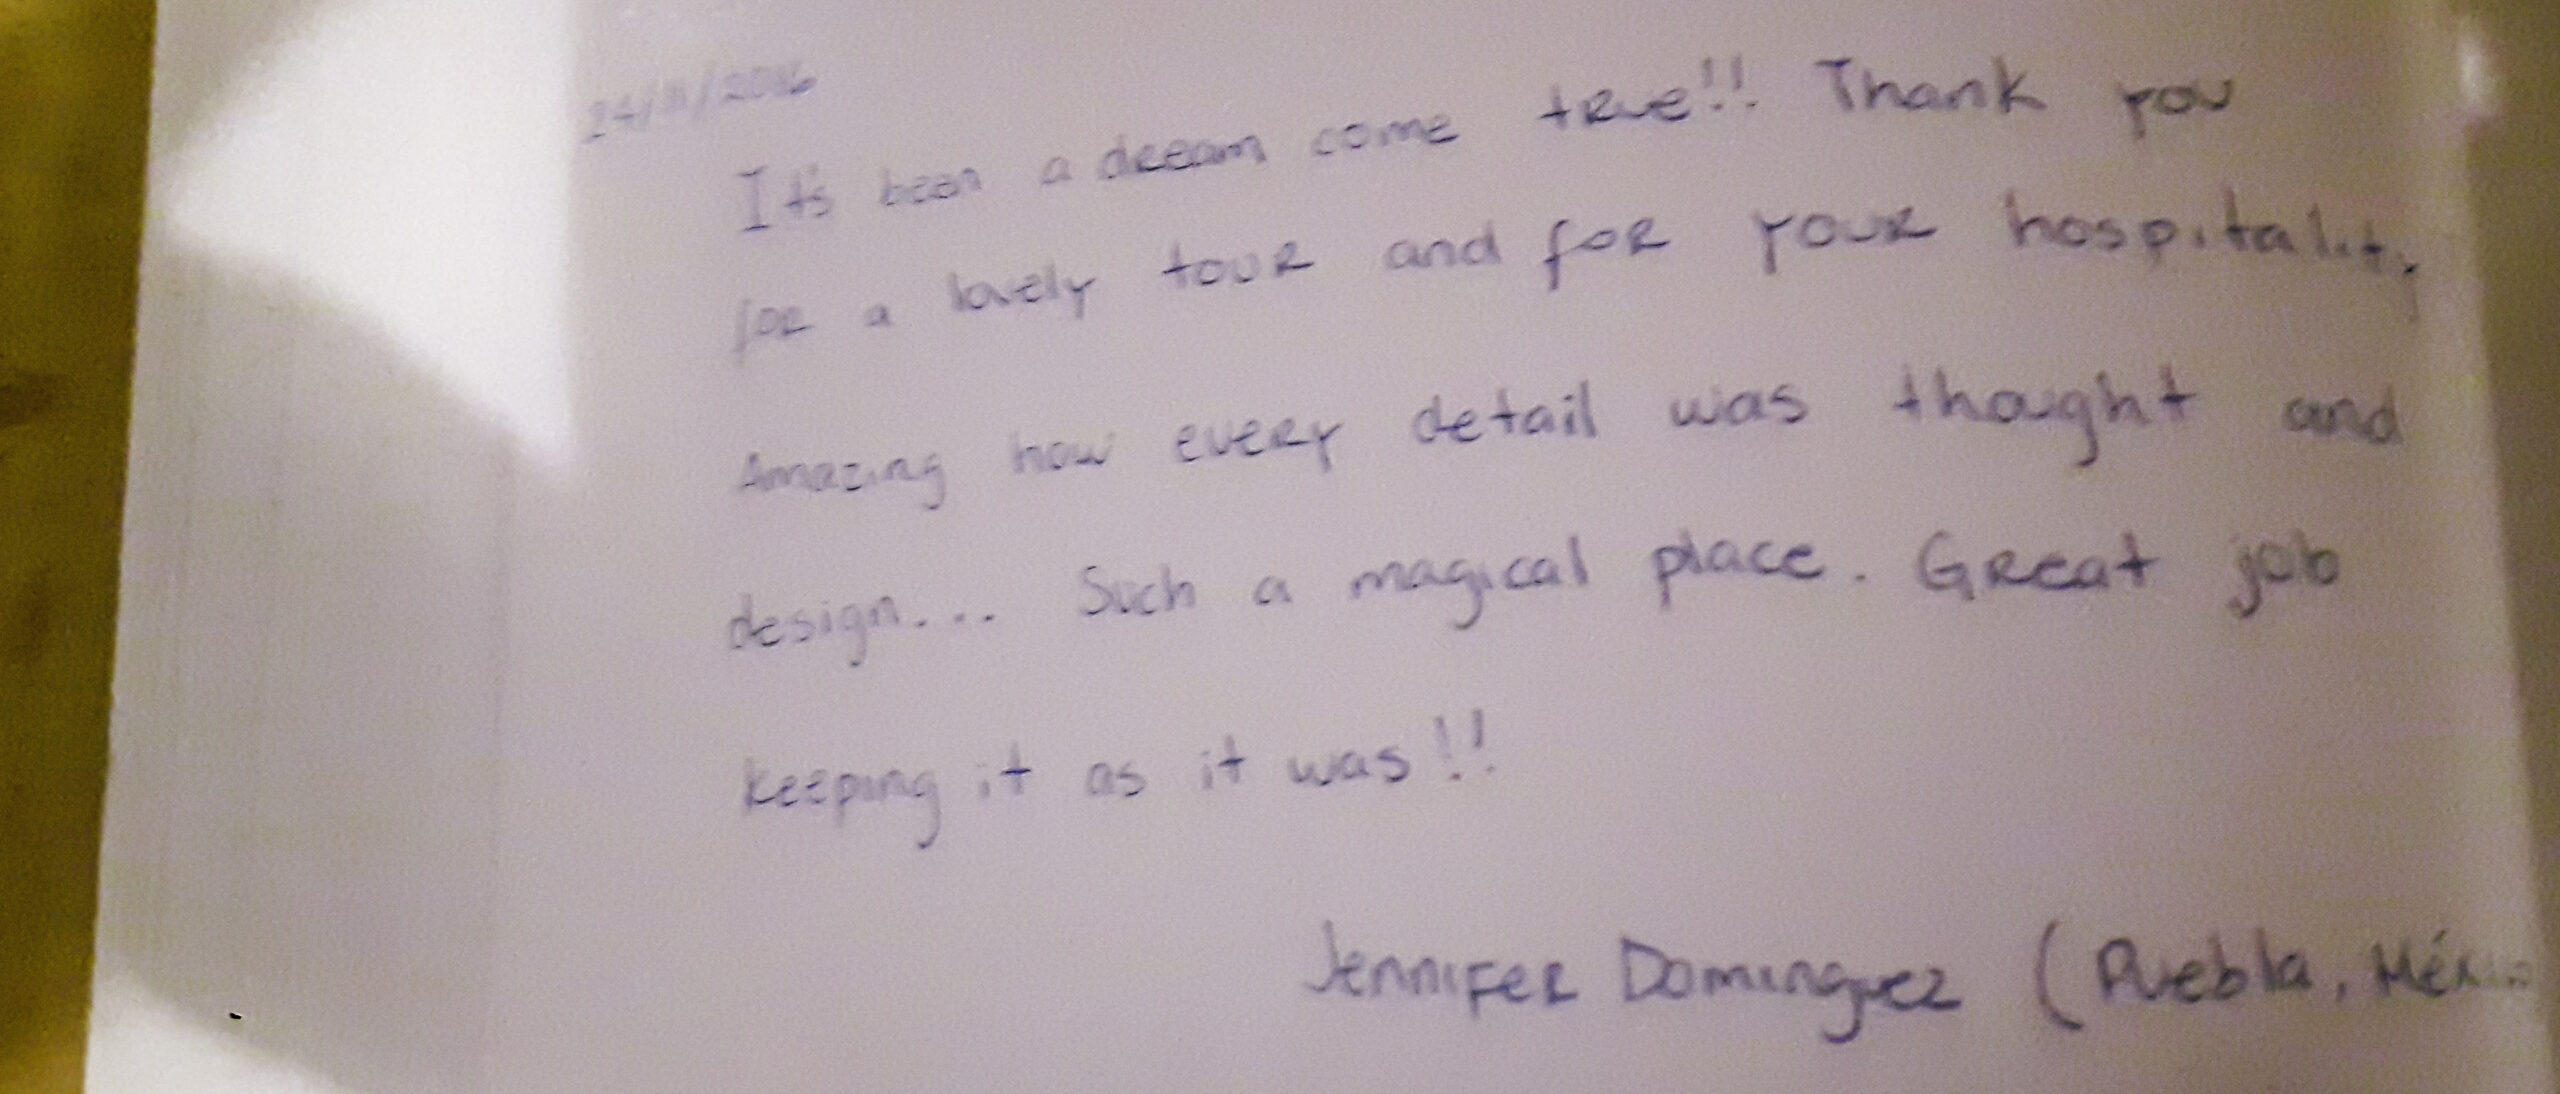 24/11/2016
It's been a dream come true!! Thank you
for a lovely tour and for your hospitality
Amazing how every detail was thought and
design.... Such a magical place. Great job
keeping it as it was!!
Jennifer Dominguez (Puebla, México